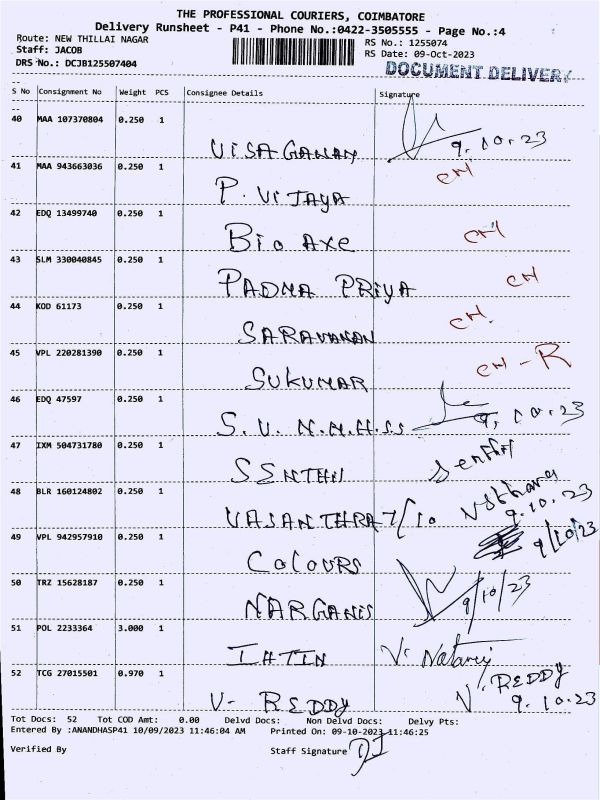 THE PROFESSIONAL COURIERS, COIMBATORE
Delivery Runsheet - P41 - Phone No.:0422-3505555 - Page No.:4
Route: NEW THILLAI NAGAR RS No.: 1255074
Staff: JACOB RS Date: 09-Oct-2023
DRS No.: DCJB125507404 DOCUMENT DELIVERY
S No Consignment No Weight PCS Consignee Details Signature
40 MAA 107370804 0.250 1
VISAGANAN 9.10.23
41 MAA 943663036 0.250 1 CH
P. VIJAYA
42 EDQ 13499740 0.250 1
Bio Axe CH
43 SLM 330040845 0.250 1
PADMA PRIYA CH
44 KOD 61173 0.250 1
SARAVANAN CH.
45 VPL 220281390 0.250 1
SUKUMAR CH - R
46 EDQ 47597 0.250 1
S.V.N.M.H.S.S 9.10.23
47 IXM 504731780 0.250 1
SENTHIL Senthil
48 BLR 160124802 0.250 1
VASANTHRA 7/10 9.10.23
49 VPL 942957910 0.250 1 9/10/23
COLOURS
50 TRZ 15628187 0.250 1 9/10/23
51 POL 2233364 3.000 1
V. Nataraj
52 TCG 27015501 0.970 1 V. REDDY
V. REDDY 9.10.23
Tot Docs: 52 Tot COD Amt: 0.00 Delvd Docs: Non Delvd Docs: Delvy Pts:
Entered By :ANANDHASP41 10/09/2023 11:46:04 AM Printed On: 09-10-2023 11:46:25
Verified By Staff Signature